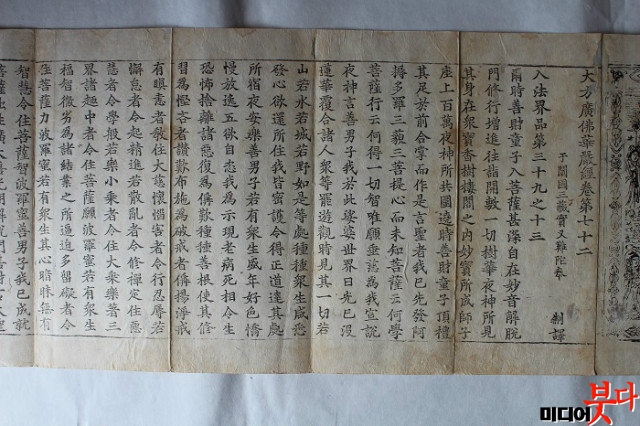 大方廣佛華嚴經卷第七十二
于闐國三藏實叉難陀奉 制譯
入法界品第三十九之十三
爾時善財童子入菩薩甚深自在妙音解脫
門修行增進往詣開敷一切樹華夜神所見
其身在衆寶香樹樓閣之內妙寶所成師子
座上百萬夜神所共圍遶時善財童子頂禮
其足於前合掌而作是言聖者我已先發阿
耨多羅三藐三菩提心而未知菩薩云何學
菩薩行云何得一切智唯願垂慈為我宣說
夜神言善男子我於此娑婆世界日光已沒
蓮華覆合諸人衆等罷遊觀時見其一切若
山若水若城若野如是等處種種衆生咸悉
發心欲還所住我皆密護令得正道達其處
所宿夜安樂善男子若有衆生盛年好色憍
慢放逸五欲自恣我為示現老病死相令生
恐怖捨離諸惡復為稱歎種種善根使其修
習為慳吝者讚歎布施為破戒者稱揚淨戒
有瞋恚者教住大慈懷惱害者令行忍辱若
懈怠者令起精進若散亂者令修禪定住惡
慧者令學般若樂小乘者令住大乘樂著三
界諸趣中者令住菩薩願波羅蜜若有衆生
福智微劣為諸結業之所逼迫多留礙者令
住菩薩力波羅蜜若有衆生其心暗昧無有
智慧令住菩薩智波羅蜜善男子我已成就
미디어붓다